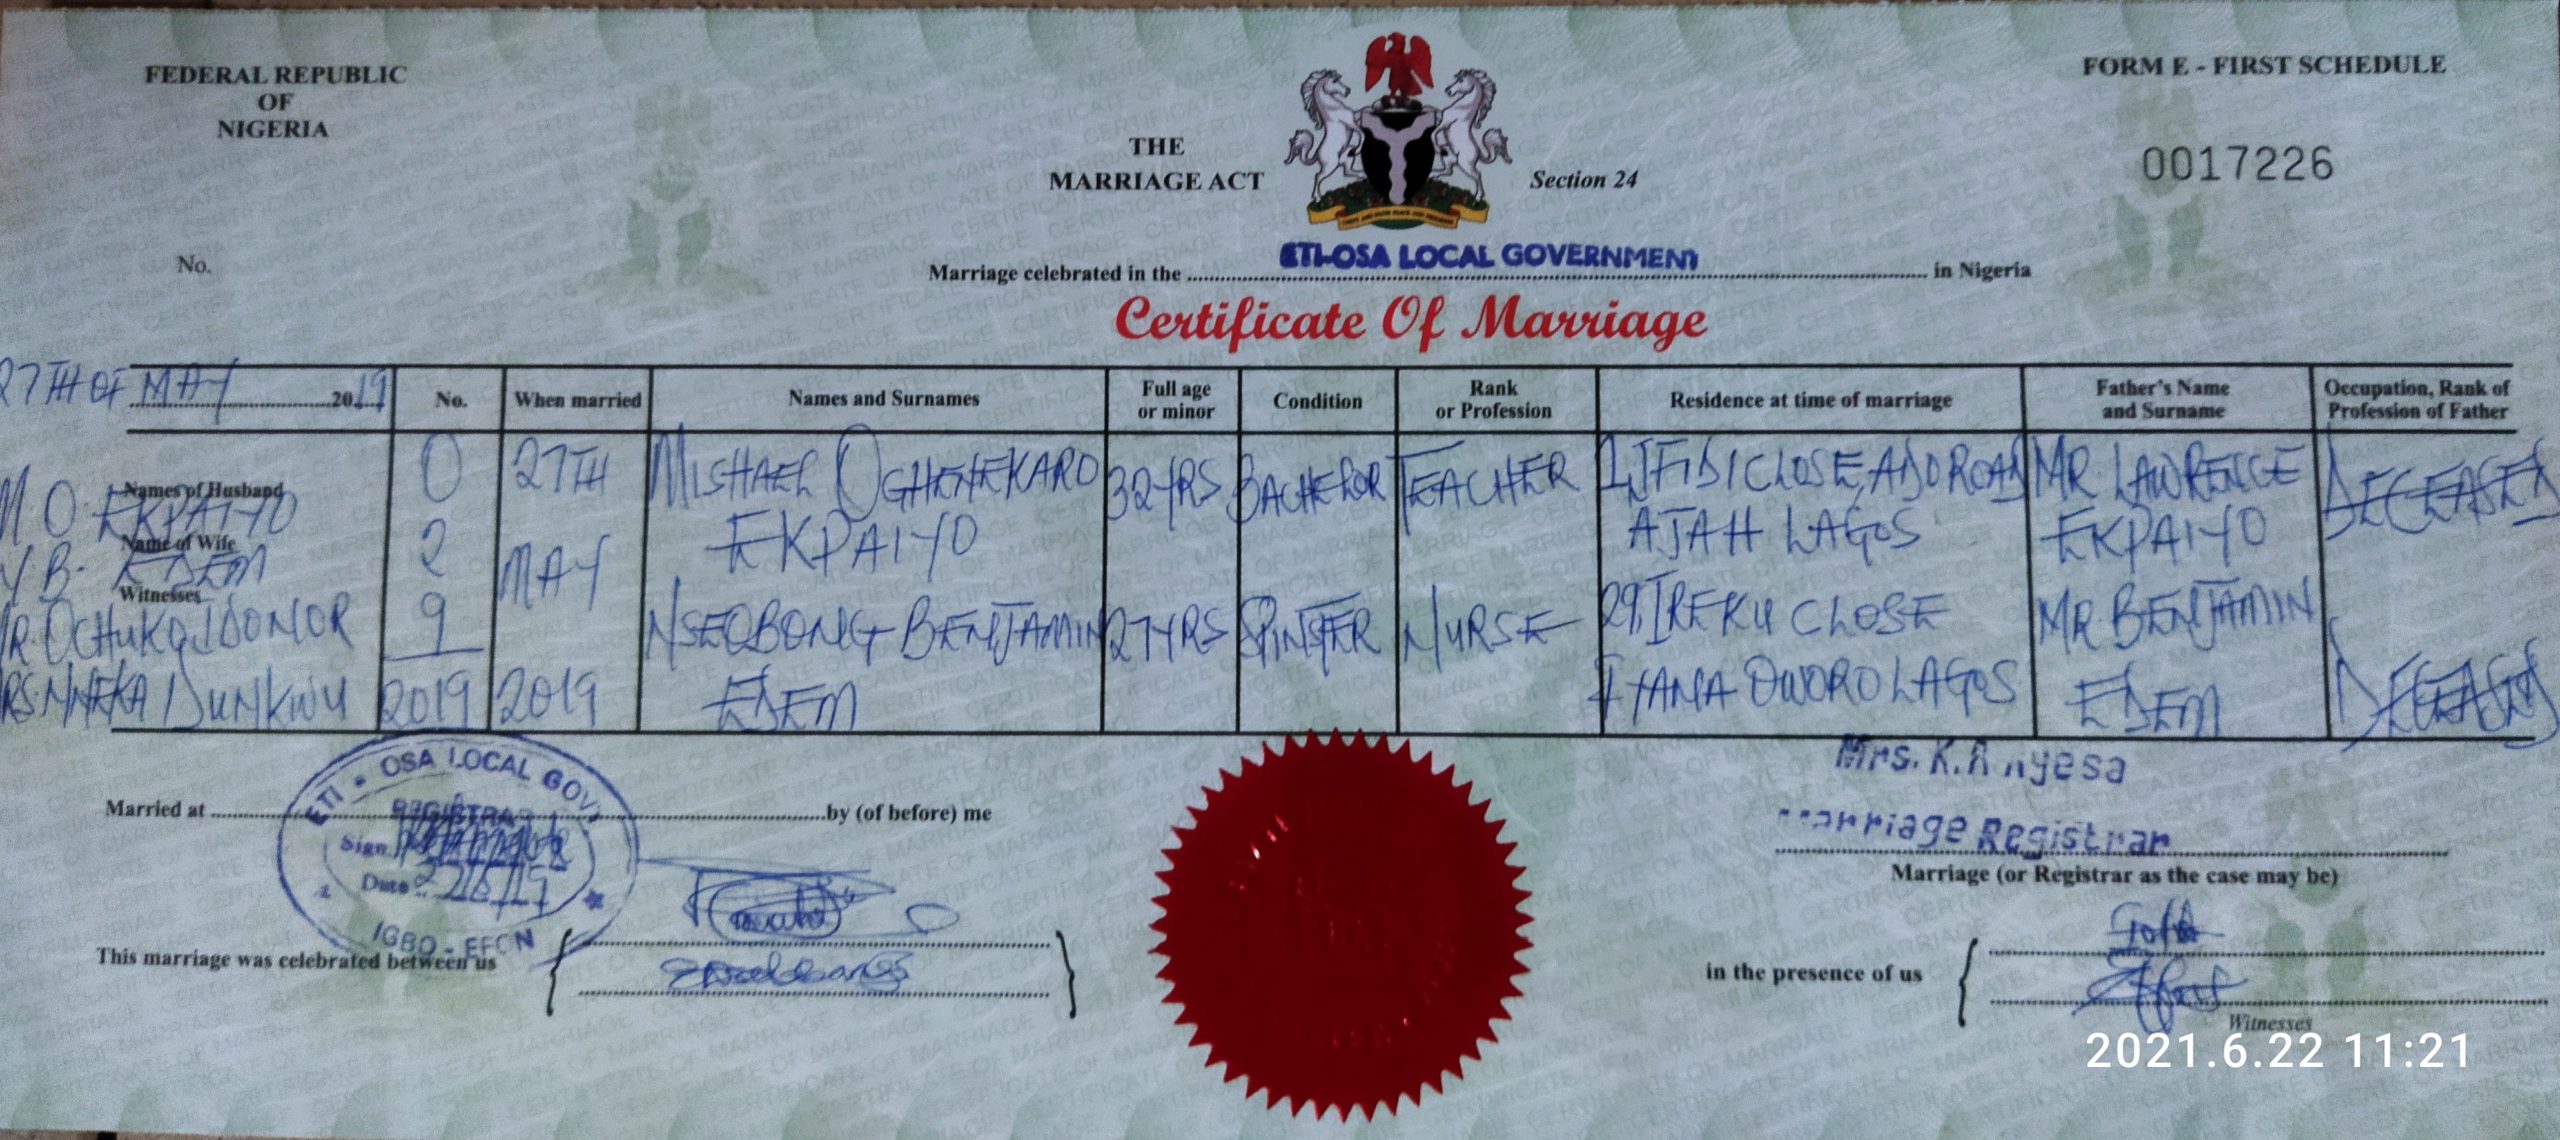 FEDERAL REPUBLIC
OF
NIGERIA
FORM E - FIRST SCHEDULE
0017226
THE
MARRIAGE ACT
Section 24
No.
Marriage celebrated in the ETI-OSA LOCAL GOVERNMENT in Nigeria
Certificate Of Marriage
27TH OF MAY 2019
No.
When married
Names and Surnames
Full age
or minor
Condition
Rank
or Profession
Residence at time of marriage
Father's Name
and Surname
Occupation, Rank of
Profession of Father
Names of Husband
M.O. EKPAIYO
Name of Wife
B. EDEM
Witnesses
OCHUKO IDONOR
NNEKA DUNKWU
0
2
9
2019
27TH
MAY
2019
MISHAEL OGHENEKARO
EKPAIYO
32YRS
BACHELOR
TEACHER
CLOSE, ADO ROAD
AJAH LAGOS
MR. LAWRENCE
EKPAIYO
DECEASED
NSEOBONG BENJAMIN
EDEM
27YRS
SPINSTER
NURSE
29, IREKU CLOSE
IYANA OWORO LAGOS
MR BENJAMIN
EDEM
DECEASED
ETI - OSA LOCAL GOVT
REGISTRAR
Sign.
Date
IGBO - EFON
Mrs. K.
Marriage Registrar
Married at
by (of before) me
Marriage (or Registrar as the case may be)
This marriage was celebrated between us
in the presence of us
Witnesses
2021.6.22 11:21